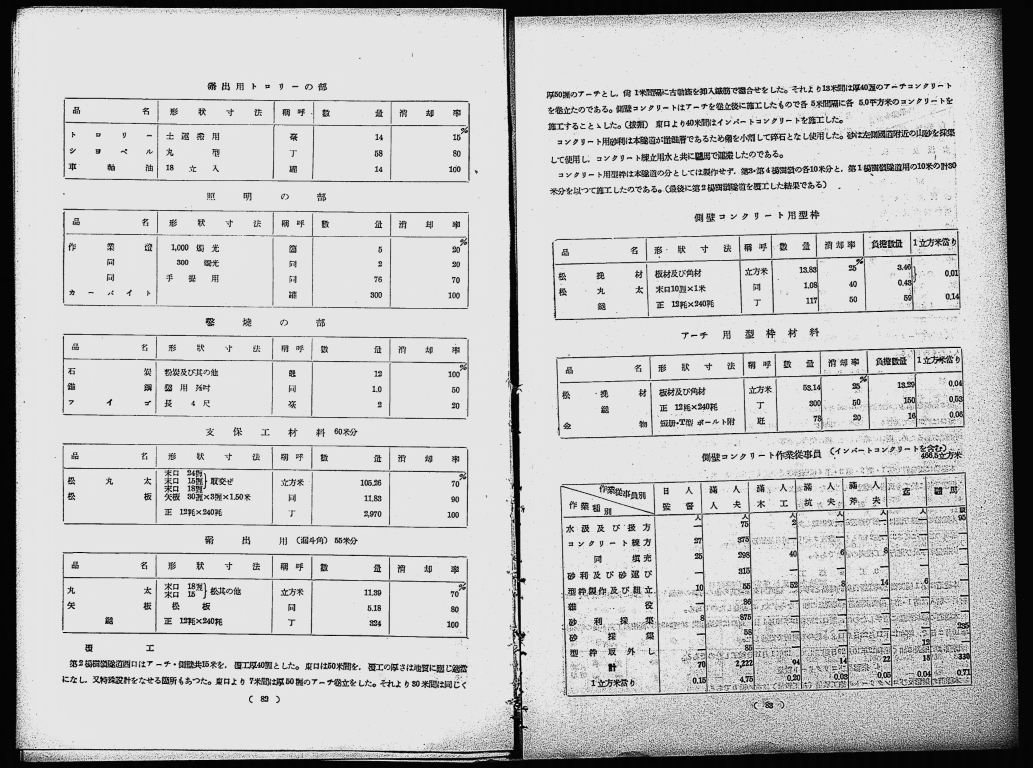 出用トロリーの部
品 名 形 状 寸 法 稱呼 數 量 消 却 率
トロリー 土運搬用 臺 14 15%
ショベル 丸 型 丁 58 80
車軸油 18 立入 罐 14 100
照 明 の 部
品 名 形 状 寸 法 稱呼 數 量 消 却 率
作業燈 1,000 燭光 箇 5 20%
同 300 燭光 同 2 20
同 手提用 同 76 70
カーバイト 罐 300 100
鑿 燒 の 部
品 名 形 状 寸 法 稱呼 數 量 消 却 率
石 炭 粉炭及び其の他 瓲 12 100%
鋼 用 吋 同 1.0 50
フイゴ 長 4 尺 臺 2 20
支保工材料 60米分
品 名 形 状 寸 法 稱呼 數 量 消 却 率
松丸太 末口 24糎 末口 15糎 末口 18糎 取交ぜ 立方米 105.26 70%
松 板 矢板 30糎×3糎×1.50米 同 11.83 90
正 12粍×240粍 丁 2,970 100
出 用 (漏斗角) 55米分
品 名 形 状 寸 法 稱呼 數 量 消 却 率
丸 太 末口 18糎 末口 15 松其の他 立方米 11.39 70%
矢 板 松 板 同 5.18 80
鎹 正 12粍×240粍 丁 324 100
覆 工
隧道西口はアーチ・側壁共15米を、覆工厚40糎とした。東口は50米間を、覆工の厚さは地質に應じ適當
になし、又特殊設計をなせる箇所もあつた。東口より 7米間は厚50糎のアーチ卷立をした。それより 30米間は同じく
( 82 )
厚50糎のアーチとし、尙 1米間隔に古軌條を挿入鐵筋で混合せをした。それより13米間は厚40糎のアーチコンクリート
を卷立たのである。側壁コンクリートはアーチを卷立後に施工したもので各 5米間隔に各 5.0平方米のコンクリートを
施工することゝした。(拔掘) 東口より40米間はインバートコンクリートを施工した。
コンクリート用砂利は本隧道が であるため を小割して碎石となし使用した。砂は左側國道附近の山砂を採集
して使用し、コンクリート練立用水と共に驢馬で運搬したのである。
コンクリート用型枠は本隧道の分としては製作せず、第3・第4 の各10米分と、第1 隧道用の10米の計30
米分を以つて施工したのである。(最後に第2 隧道を覆工した結果である)
側壁コンクリート用型枠
品 名 形 状 寸 法 稱呼 數 量 消却率 負擔數量 1立方米當り
松挽材 板材及び角材 立方米 13.83 25% 3.46 0.01
松丸太 末口10糎×1米 同 1.08 40 0.43
鎹 正 12粍×240粍 丁 117 50 59 0.14
アーチ用型枠材料
品 名 形 状 寸 法 稱呼 數 量 消却率 負擔數量 1立方米當り
松挽材 板材及び角材 立方米 53.14 25% 13.29 0.04
鎹 正 12粍×240粍 丁 300 50 150 0.53
金 物 短册・T型 ボールト附 瓩 78 20 16 0.06
側壁コンクリート作業從事員 (インバートコンクリートを含む)
466.5立方米
作業種別 作業從事員別 日人監督 滿人人夫 滿人木工 滿人坑夫 滿人斧夫 驢馬
水汲及び扱方 人 — 人 75 人 2 人 — 人 — 人 — 頭 95
コンクリート練方 27 375 — — — — —
同 塡充 25 298 40 6 8 — —
砂利及び砂運び — 315 — — — — —
型枠製作及び組立 10 55 52 8 14 6 —
雜 役 — 86 — — — — —
砂利採集 8 875 — — — — —
砂 採 集 — 58 — — — — 235
型枠取外し — 85 — — — 12 —
計 70 2,222 94 14 22 18 330
1立方米當り 0.15 4.75 0.20 0.03 0.05 0.04 0.71
( 83 )